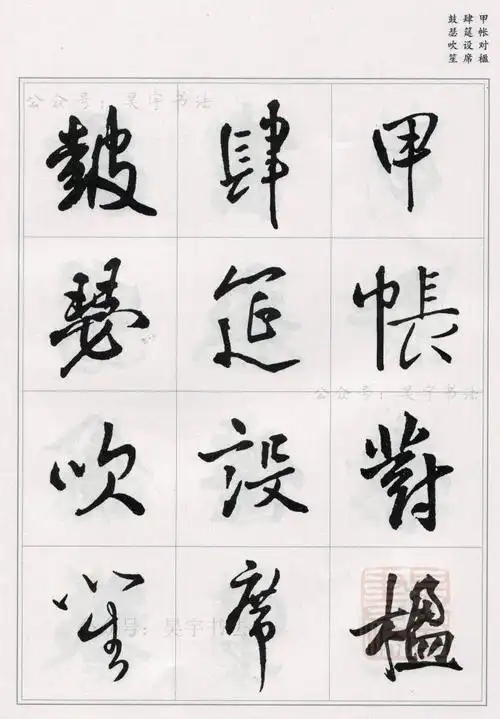 甲帐对楹
肆筵设席
鼓瑟吹笙
公众号：昊宇书法
甲帳對楹
肆筵設席
鼓瑟吹笙
公众号：昊宇书法
号：昊宇书法